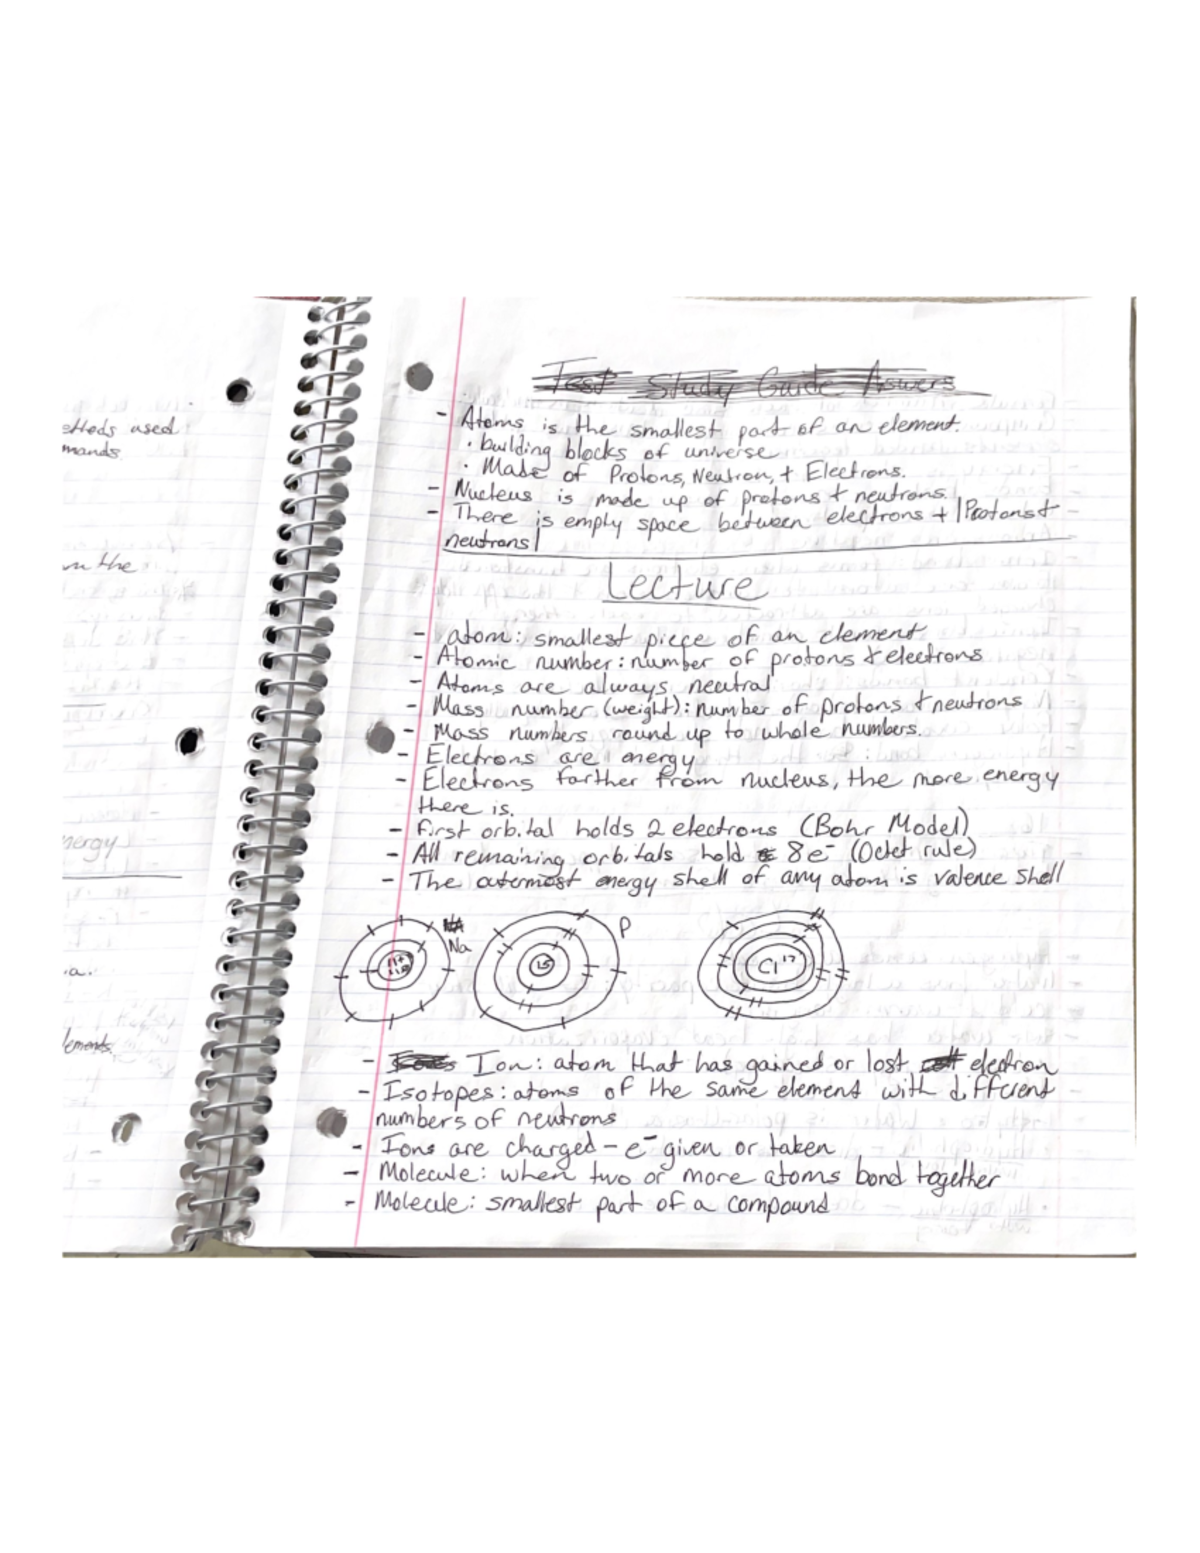 ethods used
mands
in the
nergy
a.
lements
Test Study Guide Aswers
- Atoms is the smallest part of an element.
· building blocks of universe
· Made of Protons, Neutron, + Electrons.
- Nucleus is made up of protons + neutrons.
- There is empty space between electrons + |Protons +
neutrons|
Lecture
- atom: smallest piece of an element
- Atomic number: number of protons & electrons
- Atoms are always neutral
- Mass number (weight): number of protons + neutrons
- Mass numbers round up to whole numbers.
- Electrons are energy
- Electrons farther from nucleus, the more energy
there is.
- First orbital holds 2 electrons (Bohr Model)
- All remaining orbitals hold 8e⁻ (Octet rule)
- The outermost energy shell of any atom is valence shell
Na
15
P
Cl¹⁷
- Ion: atom that has gained or lost electron
- Isotopes: atoms of the same element with different
numbers of neutrons
- Ions are charged - e⁻ given or taken
- Molecule: when two or more atoms bond together
- Molecule: smallest part of a compound